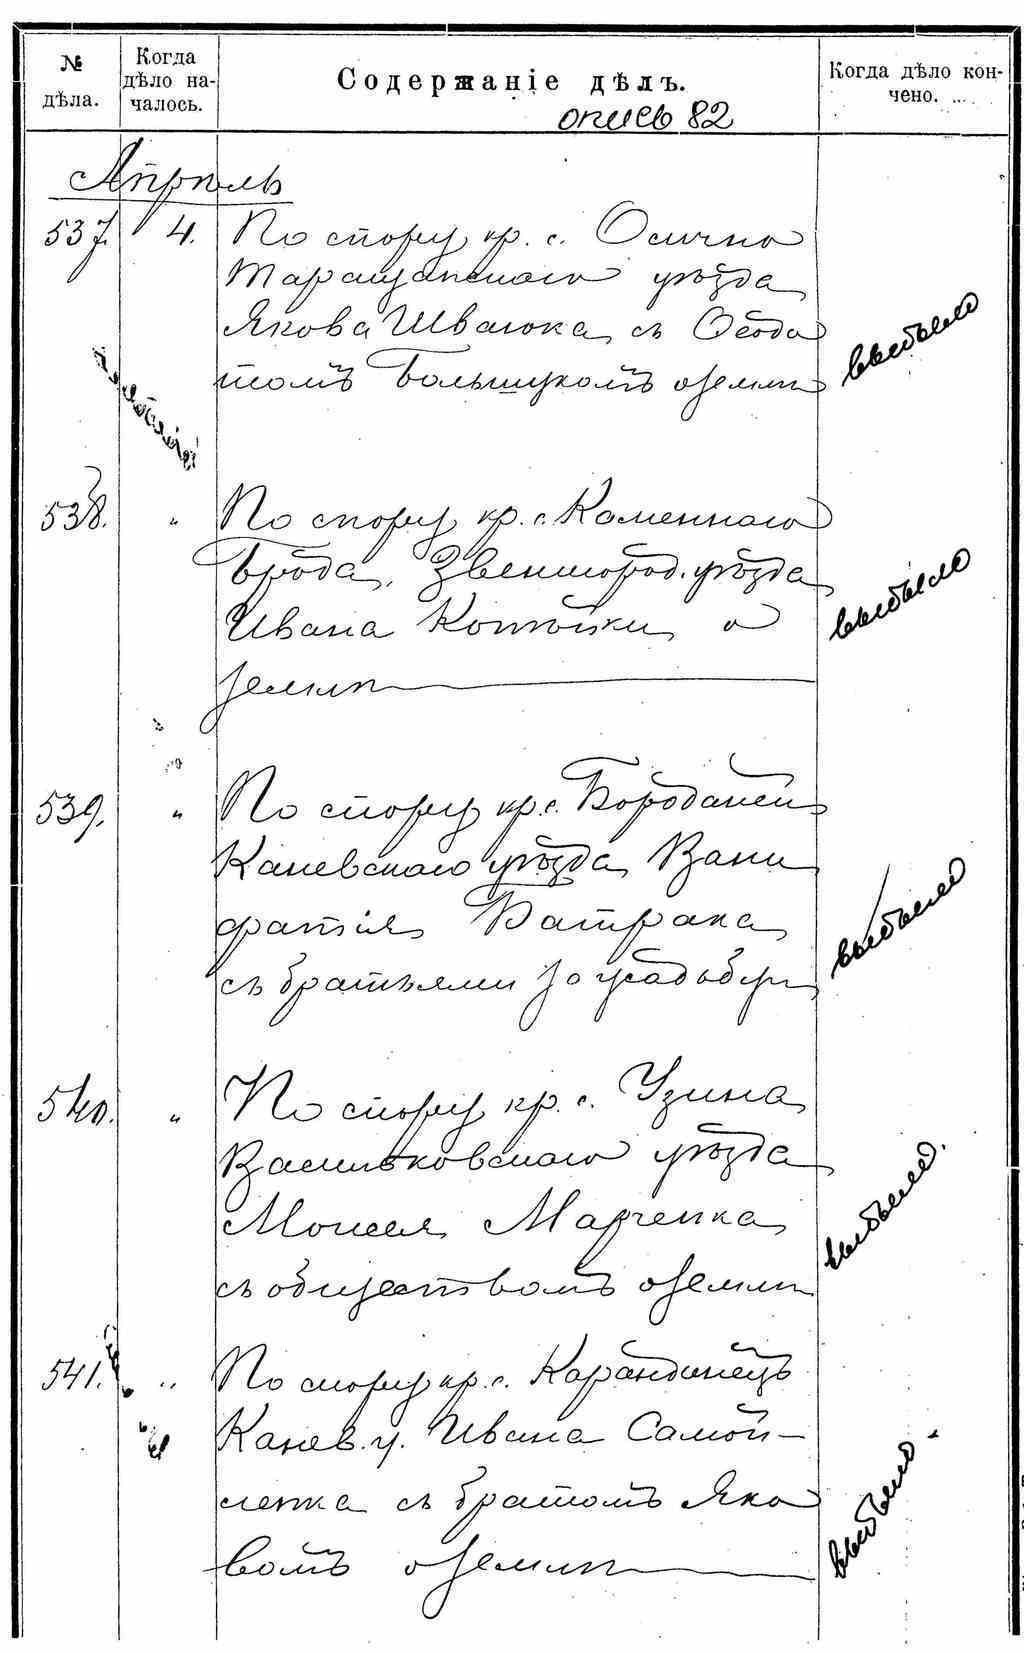 № дѣла.
Когда дѣло на-
чалось.
Содержаніе дѣлъ.
Когда дѣло кон-
чено.
опись 82
Апрѣль
537. 4. По спору кр. с. Осична
Таращанскаго уѣзда
Якова Швагюка съ
томъ Большукомъ о земли
выбыло
538. " По спору кр. с. Каменнаго
Брода, Звенигород. уѣзда
Ивана о
земли
выбыло
539. " По спору кр. с. Бороданей
Каневскаго уѣзда Вани
фатія Батрака
съ братьями за усадьбу
выбыло
540. " По спору кр. с. Узина
Васильковскаго уѣзда
Моисея Марченка
съ обществомъ о земли
выбыло.
541. " По спору кр. с. Карандинецъ
Канев. у. Ивана Самой-
ленка съ братомъ Яко
вомъ о земли
выбыло